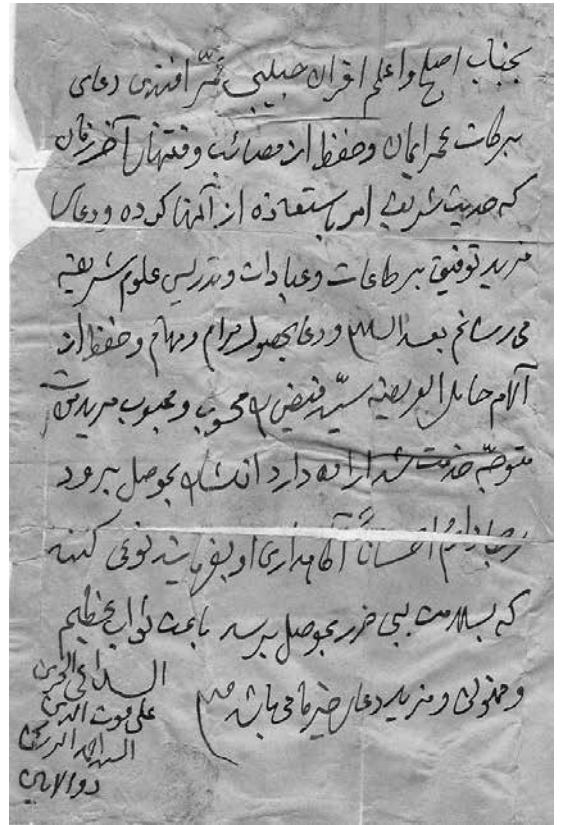 بجناب اصلح واعلم اقران حبیبی عمر افندی دعای
برکات عمر ایمان وحفظ از مصائب وفتنهای آخر زمان
که حدیث شریف امر باستعاذه از آنها کرده ودعای
مزید توفیق بر طاعات وعبادات وتدریس علوم شریفه
می رسانم بعد السلام ودعا بحصول مرام ومهام وحفظ از
آلام حامل العریضه سیّد فیض الله محسوب ومحبوب مریدین
متوجّه خدمت شد اراده دارد انشاءالله بموصل برود
رجا دارم احساناً آگاهداری او بفرمایید نوعی کنند
که بسلامت بی ضرر بموصل برسد باعث ثواب عظیم
وممنونی ومزید دعای خیر ما می باشد
الداعی الحزین
علی
السید